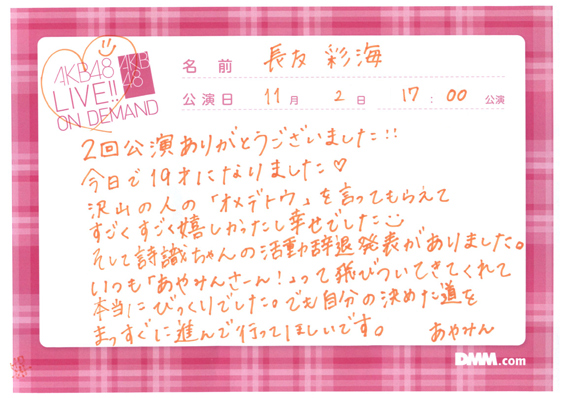 AKB48
LIVE!!
ON DEMAND
AKB
48
名前 長友 彩海
公演日 11月 2日 17:00 公演
2回公演ありがとうございました!!
今日で19才になりました♡
沢山の人の「オメデトウ」を言ってもらえて
すごくすごく嬉しかったし幸せでした
そして詩識ちゃんの活動辞退発表がありました。
いつも「あやみんさーん!」って飛びついてきてくれて
本当にびっくりでした。でも自分の決めた道を
まっすぐに進んで行ってほしいです。 あやみん
DMM.com